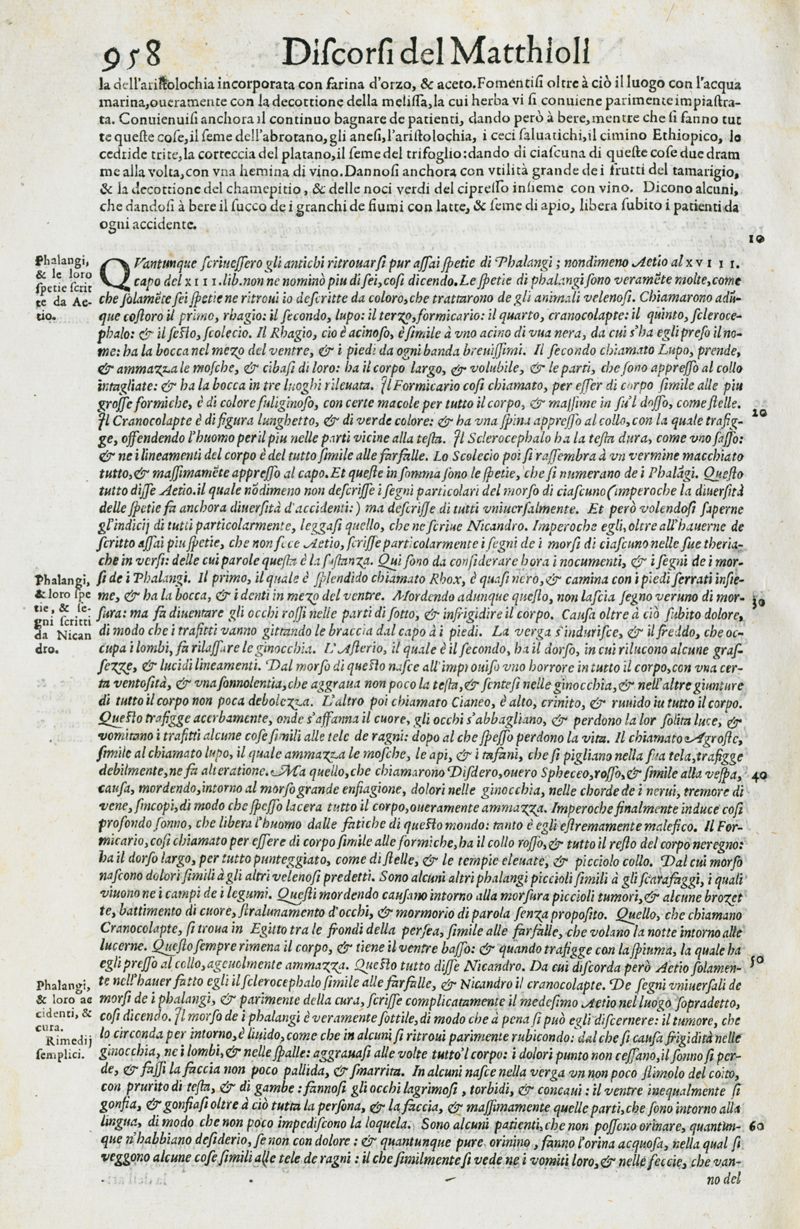 958 Diſcorſi del Matthioli
la dell'ariſtolochia incorporata con farina d'orzo, & aceto. Fomentiſi oltre à ciò il luogo con l'acqua
marina, oueramente con la decottione della meliſſa, la cui herba vi ſi conuiene parimente impiaſtra-
ta. Conuienuiſi anchora il continuo bagnare de patienti, dando però à bere, mentre che ſi fanno tut
te queſte coſe, il ſeme dell'abrotano, gli aneſi, l'ariſtolochia, i ceci ſaluatichi, il cimino Ethiopico, lo
cedride trite, la corteccia del platano, il ſeme del trifoglio: dando di ciaſcuna di queſte coſe due dram
me alla volta, con vna hemina di vino. Dannoſi anchora con vtilità grande de i frutti del tamarigio,
& la decottione del chamepitio, & delle noci verdi del cipreſſo inſieme con vino. Dicono alcuni,
che dandoſi à bere il ſucco de i granchi de fiumi con latte, & ſeme di apio, libera ſubito i patienti da
ogni accidente.
10
Phalangi,
& le loro
ſpetie ſcrit
te da Ae-
tio.
QVantunque ſcriueſſero gli antichi ritrouarſi pur aſſai ſpetie di Phalangi; nondimeno Aetio al XVIII.
capo del XIII. lib. non ne nominò piu di ſei, coſi dicendo. Le ſpetie di phalangi ſono veramẽte molte, come
che ſolamẽte ſei ſpetie ne ritroui io deſcritte da coloro, che trattarono de gli animali velenoſi. Chiamarono adũ-
que coſtoro il primo, rhagio: il ſecondo, lupo: il terzo, formicario: il quarto, cranocolapte: il quinto, ſcleroce-
phalo: & il ſeſto, ſcolecio. Il Rhagio, cio è acinoſo, è ſimile à vno acino di vua nera, da cui s'ha egli preſo il no-
me: ha la bocca nel mezo del ventre, & i piedi da ogni banda breuiſſimi. Il ſecondo chiamato Lupo, prende,
& ammazza le moſche, & cibaſi di loro: ha il corpo largo, & volubile, & le parti, che ſono appreſſo al collo
intagliate: & ha la bocca in tre luoghi rileuata. Il Formicario coſi chiamato, per eſſer di corpo ſimile alle piu
groſſe formiche, è di colore fuliginoſo, con certe macole per tutto il corpo, & maſſime in ſu'l doſſo, come ſtelle.
20
Il Cranocolapte è di figura lunghetto, & di verde colore: & ha vna ſpina appreſſo al collo, con la quale trafig-
ge, offendendo l'huomo per il piu nelle parti vicine alla teſta. Il Sclerocephalo ha la teſta dura, come vno ſaſſo:
& ne i lineamenti del corpo è del tutto ſimile alle farfalle. Lo Scolecio poi ſi raſſembra à vn vermine macchiato
tutto, & maſſimamẽte appreſſo al capo. Et queſte in ſomma ſono le ſpetie, che ſi numerano de i Phalãgi. Queſto
tutto diſſe Aetio. il quale nõdimeno non deſcriſſe i ſegni particolari del morſo di ciaſcuno (imperoche la diuerſità
delle ſpetie fa anchora diuerſità d'accidenti:) ma deſcriſſe di tutti vniuerſalmente. Et però volendoſi ſaperne
gl'indicij di tutti particolarmente, leggaſi quello, che ne ſcriue Nicandro. Imperoche egli, oltre all'hauerne de
ſcritto aſſai piu ſpetie, che non fece Aetio, ſcriſſe particolarmente i ſegni de i morſi di ciaſcuno nelle ſue theria-
che in verſi: delle cui parole queſta è la ſuſtanza. Qui ſono da conſiderare hora i nocumenti, & i ſegni de i mor-
Phalangi,
& loro ſpe
tie, & ſe-
gni ſcritti
da Nican
dro.
ſi de i Phalangi. Il primo, il quale è ſplendido chiamato Rhox, è quaſi nero, & camina con i piedi ſerrati inſie-
me, & ha la bocca, & i denti in mezo del ventre. Mordendo adunque queſto, non laſcia ſegno veruno di mor-
30
ſura: ma fa diuentare gli occhi roſſi nelle parti di ſotto, & infrigidire il corpo. Cauſa oltre à ciò ſubito dolore,
di modo che i trafitti vanno gittando le braccia dal capo à i piedi. La verga s'induriſce, & il freddo, che oc-
cupa i lombi, fa rilaſſare le ginocchia. L'Aſterio, il quale è il ſecondo, ha il dorſo, in cui rilucono alcune graſ-
ſezze, & lucidi lineamenti. Dal morſo di queſto naſce all'improuiſo vno horrore in tutto il corpo, con vna cer-
ta ventoſità, & vna ſonnolentia, che aggraua non poco la teſta, & ſenteſi nelle ginocchia, & nell'altre giunture
di tutto il corpo non poca debolezza. L'altro poi chiamato Cianeo, è alto, crinito, & ruuido in tutto il corpo.
Queſto trafigge acerbamente, onde s'affanna il cuore, gli occhi s'abbagliano, & perdono la lor ſolita luce, &
vomitano i trafitti alcune coſe ſimili alle tele de ragni: dopo al che ſpeſſo perdono la vita. Il chiamato Agroſte,
ſimile al chiamato lupo, il quale ammazza le moſche, le api, & i tafani, che ſi pigliano nella ſua tela, trafigge
debilmente, ne fa alteratione. Ma quello, che chiamarono Diſdero, ouero Spheceo, roſſo, & ſimile alla veſpa,
40
cauſa, mordendo, intorno al morſo grande enfiagione, dolori nelle ginocchia, nelle chorde de i nerui, tremore di
vene, ſincopi, di modo che ſpeſſo lacera tutto il corpo, oueramente ammazza. Imperoche finalmente induce coſi
profondo ſonno, che libera l'huomo dalle fatiche di queſto mondo: tanto è egli eſtremamente malefico. Il For-
micario, coſi chiamato per eſſere di corpo ſimile alle formiche, ha il collo roſſo, & tutto il reſto del corpo ne regno:
ha il dorſo largo, per tutto punteggiato, come di ſtelle, & le tempie eleuate, & picciolo collo. Dal cui morſo
naſcono dolori ſimili à gli altri velenoſi predetti. Sono alcuni altri phalangi piccioli ſimili à gli ſcarafaggi, i quali
viuono ne i campi de i legumi. Queſti mordendo cauſano intorno alla morſura piccioli tumori, & alcune brozet
te, battimento di cuore, ſtralunamento d'occhi, & mormorio di parola ſenza propoſito. Quello, che chiamano
Cranocolapte, ſi troua in Egitto tra le frondi della perſea, ſimile alle farfalle, che volano la notte intorno alle
lucerne. Queſto ſempre rimena il corpo, & tiene il ventre baſſo: & quando trafigge con la ſpiuma, la quale ha
50
egli preſſo al collo, ageuolmente ammazza. Queſto tutto diſſe Nicandro. Da cui diſcorda però Aetio ſolamen-
te nell'hauer fatto egli il ſclerocephalo ſimile alle farfalle, & Nicandro il cranocolapte. De ſegni vniuerſali de
Phalangi,
& loro ac
cidenti, &
cura.
Rimedij
ſemplici.
morſi de i phalangi, & parimente della cura, ſcriſſe complicatamente il medeſimo Aetio nel luogo ſopradetto,
coſi dicendo. Il morſo de i phalangi è veramente ſottile, di modo che à pena ſi può egli diſcernere: il tumore, che
lo circonda per intorno, è liuido, come che in alcuni ſi ritroui parimente rubicondo: dal che ſi cauſa frigidità nelle
ginocchia, ne i lombi, & nelle ſpalle: aggrauaſi alle volte tutto'l corpo: i dolori punto non ceſſano, il ſonno ſi per-
de, & faſſi la faccia non poco pallida, & ſmarrita. In alcuni naſce nella verga vn non poco ſtimolo del coito,
con prurito di teſta, & di gambe: fannoſi gli occhi lagrimoſi, torbidi, & concaui: il ventre inequalmente ſi
gonfia, & gonfiaſi oltre à ciò tutta la perſona, & la faccia, & maſſimamente quelle parti, che ſono intorno alla
lingua, di modo che non poco impediſcono la loquela. Sono alcuni patienti, che non poſſono orinare, quantun-
60
que n'habbiano deſiderio, ſe non con dolore: & quantunque pure orinino, fanno l'orina acquoſa, nella qual ſi
veggono alcune coſe ſimili alle tele de ragni: il che ſimilmente ſi vede ne i vomiti loro, & nelle feccie, che van-
no del